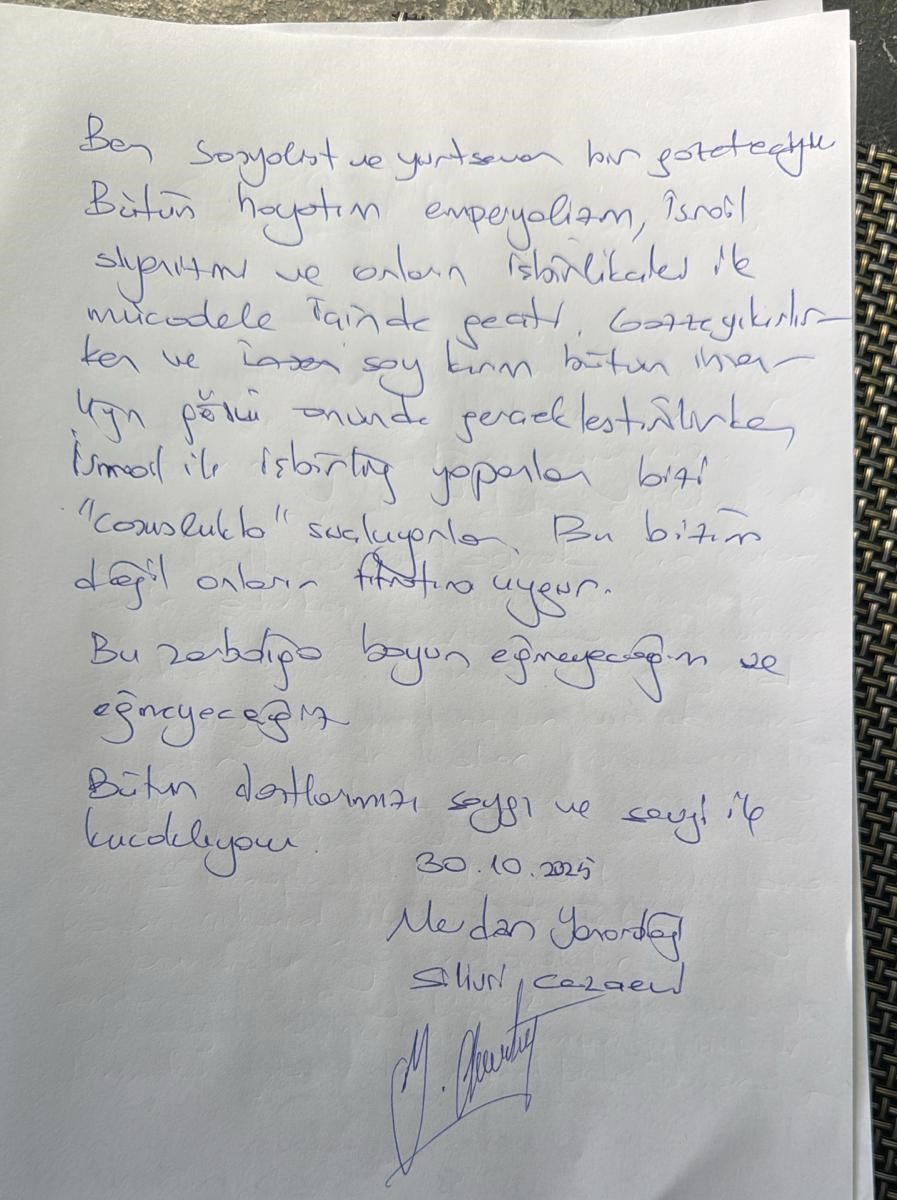 Ben sosyalist ve yurtsever bir gazeteciyim
Bütün hayatım emperyalizm, İsrail
siyonizmi ve onların işbirlikçileri ile
mücadele içinde geçti. Gazze yıkılır-
ken ve soykırım bütün insan-
lığın gözü önünde gerçekleştirilirken,
İsrail ile işbirliği yapanlar bizi
"casuslukla" suçluyorlar. Bu bizim
değil onların fıtratına uygun.
Bu zorbalığa boyun eğmeyeceğim ve
eğmeyeceğiz
Bütün dostlarımızı saygı ve sevgi ile
kucaklıyorum.
30.10.2025
Merdan Yanardağ
Silivri, cezaevi